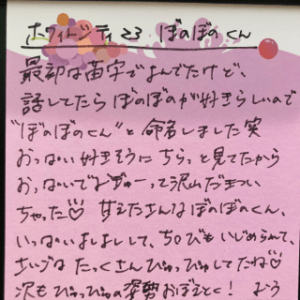 ホワイトシティ23 ぼのぼのくん
最初は苗字でよんでたけど、
話してたらぼのぼのが好きらしいので
"ぼのぼのくん"と命名しました笑
おっぱい好きそうにちらっと見てたから
おっぱいでぎゅーって沢山だきつい
ちゃった♡ 甘えたさんなぼのぼのくん、
いっぱいよしよしして、ちくびもいじめられて、
さいごは たっくさんぴゅっぴゅしてたね♡
次もぴゅっぴゅの姿勢おぼえとく!